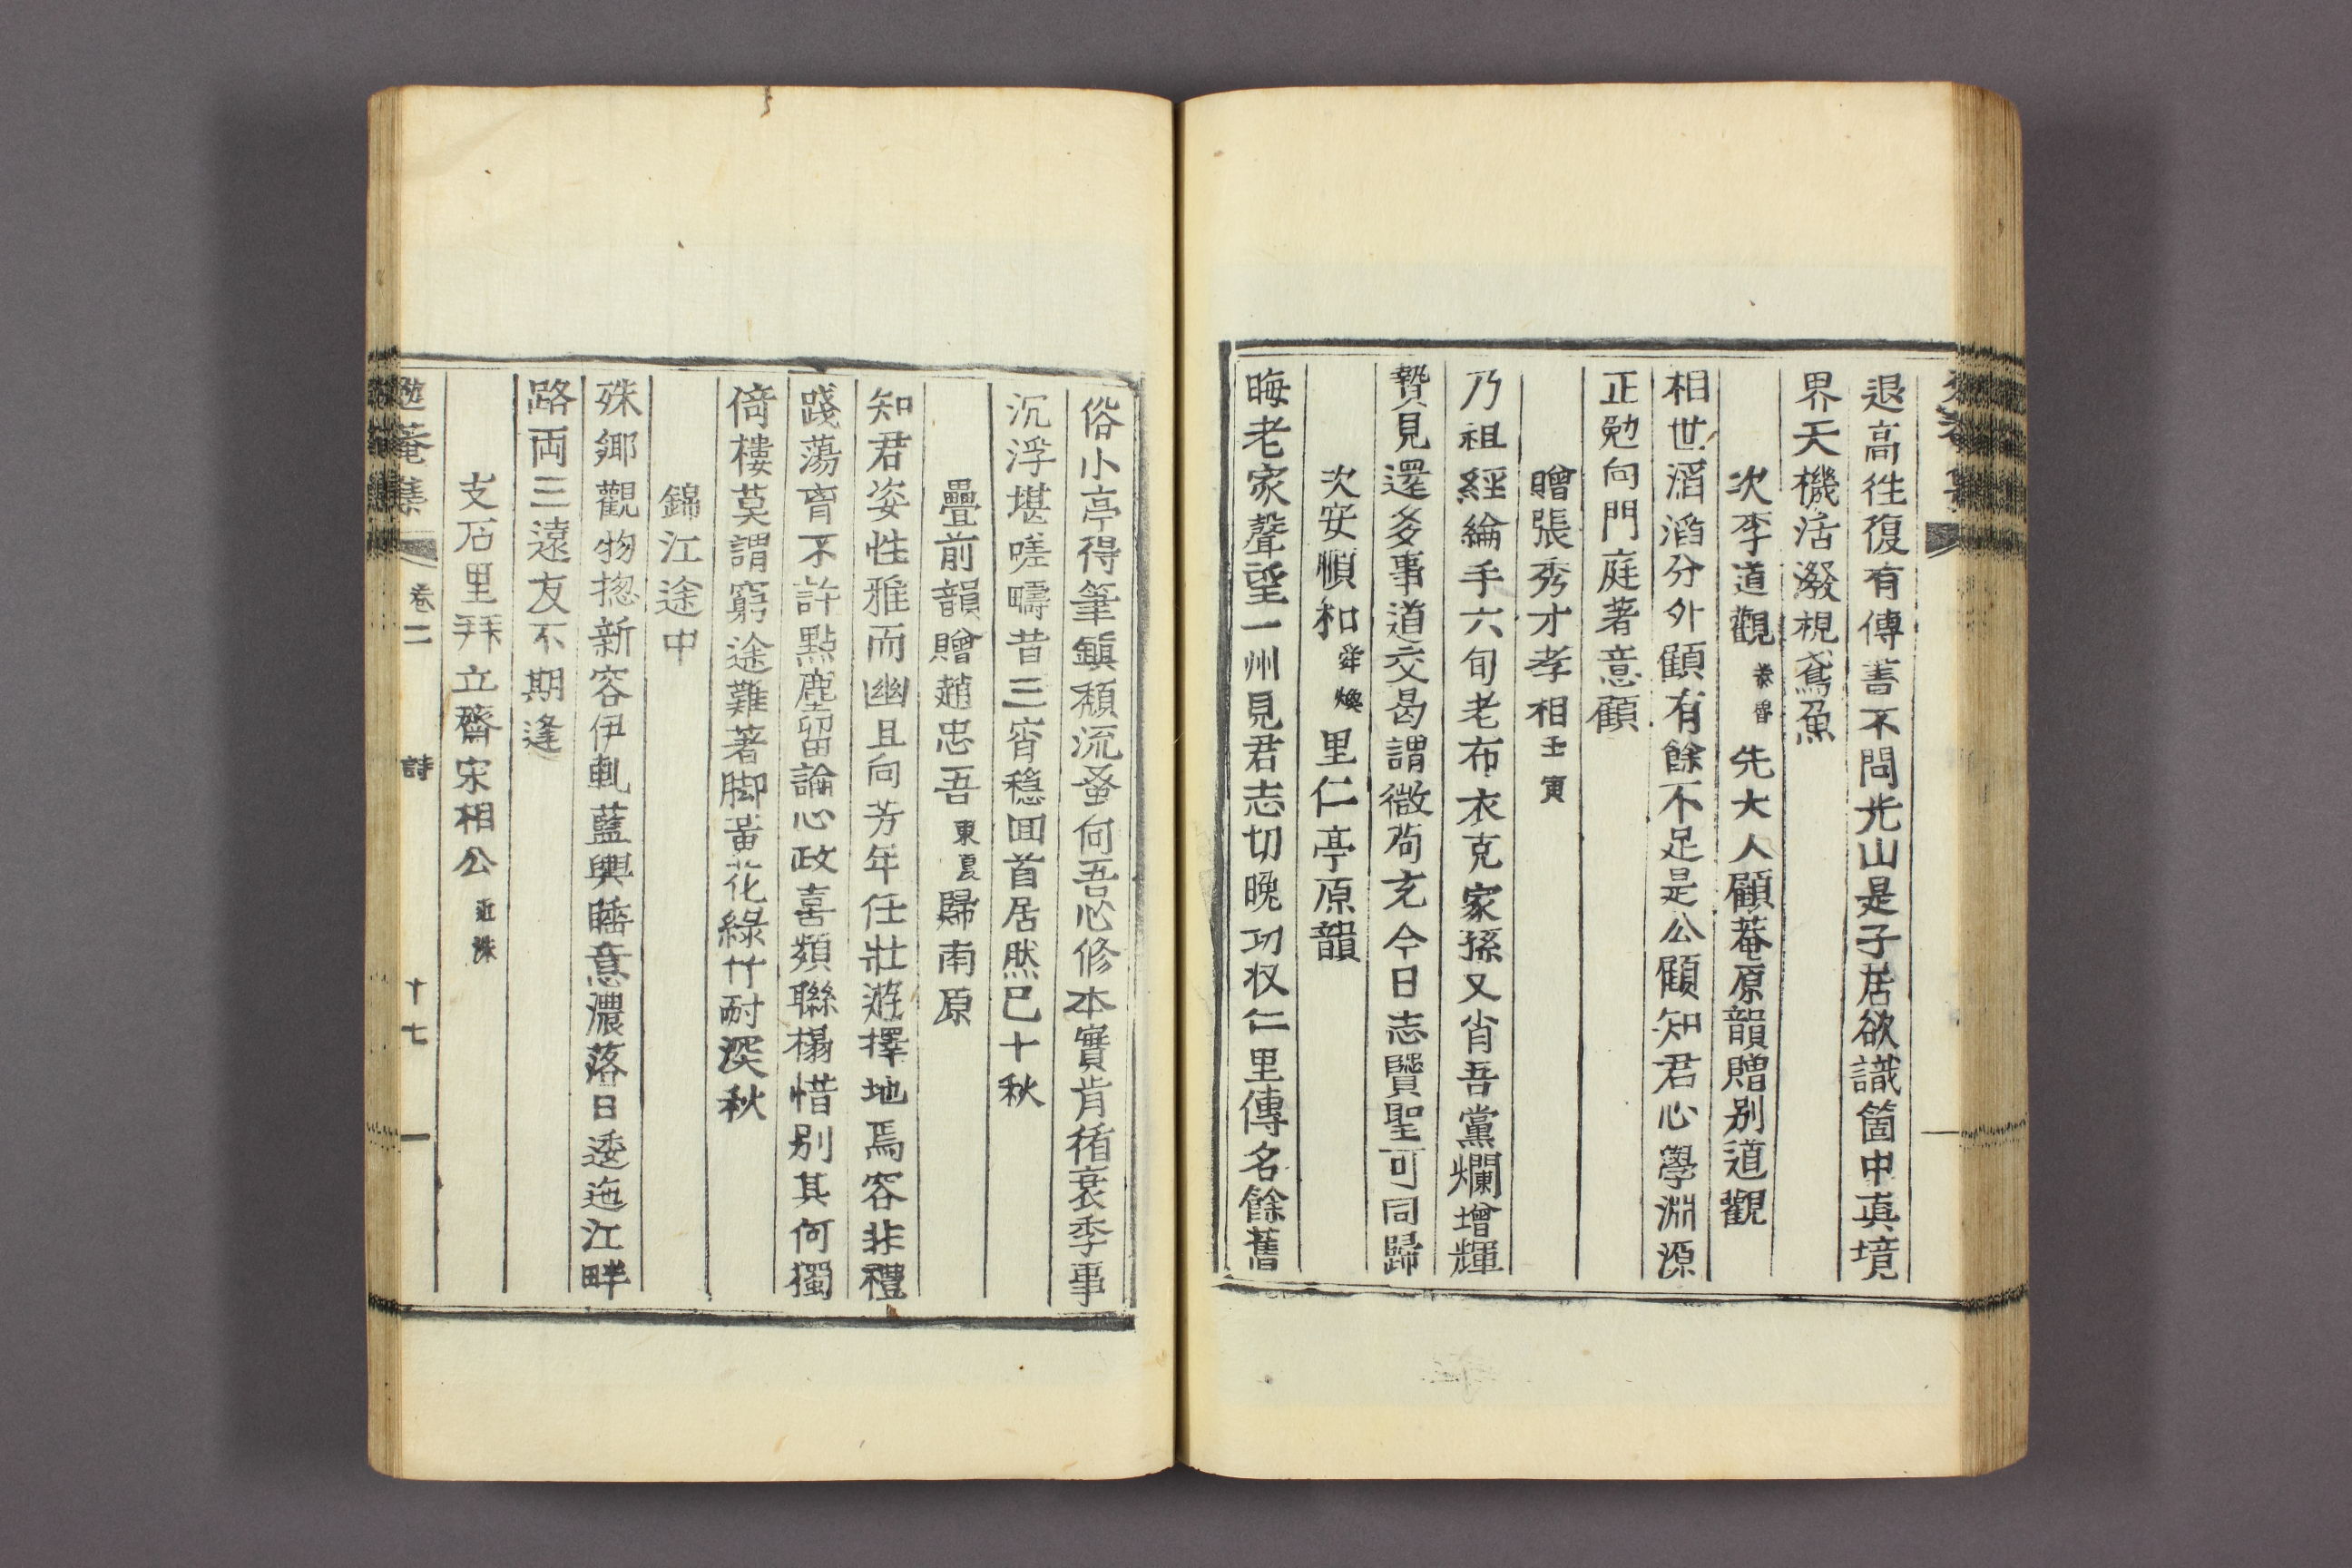 退高徃復有傳書不問光山是子居欲識箇中真境
界天機活潑視鳶魚
次李道觀泰魯先大人顧菴原韻贈别道觀
相世滔滔分外顧有餘不足是公顧知君心學淵源
正勉向門庭著意顧
贈張秀才孝相壬寅
乃祖經綸手六旬老布衣克家孫又肖吾黨爛增輝
贄見還多事道交曷謂微苟充今日志賢聖可同歸
次安順和舜煥里仁亭原韻
晦老家聲望一州見君志切晚功収仁里傳名餘舊
俗小亭得筆鎭頹流蚤何吾心修本實肯循衰季事
沉浮堪嗟疇昔三宵穏囬首居然已十秋
疊前韻贈趙忠吾東夏歸南原
知君姿性雅而幽且向芳年任壯遊擇地焉容非禮
踐蕩胷不許點塵留論心政喜頻聯榻惜別其何獨
倚樓莫謂窮途難著脚黃花綠竹耐深秋
錦江途中
殊鄉觀物揔新容伊軋藍輿睡意濃落日逶迤江畔
路両三遠友不期逢
支石里拜立齋宋相公近洙
卷二 詩 十七